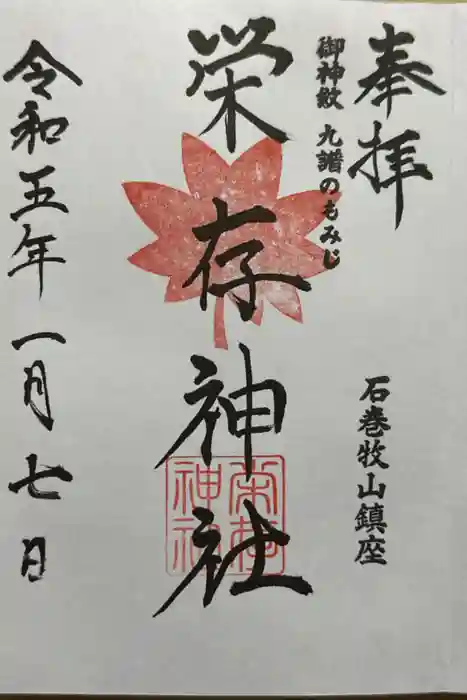 奉拝
御神紋 九譜のもみじ
石巻牧山鎮座
栄存神社
令和五年一月七日